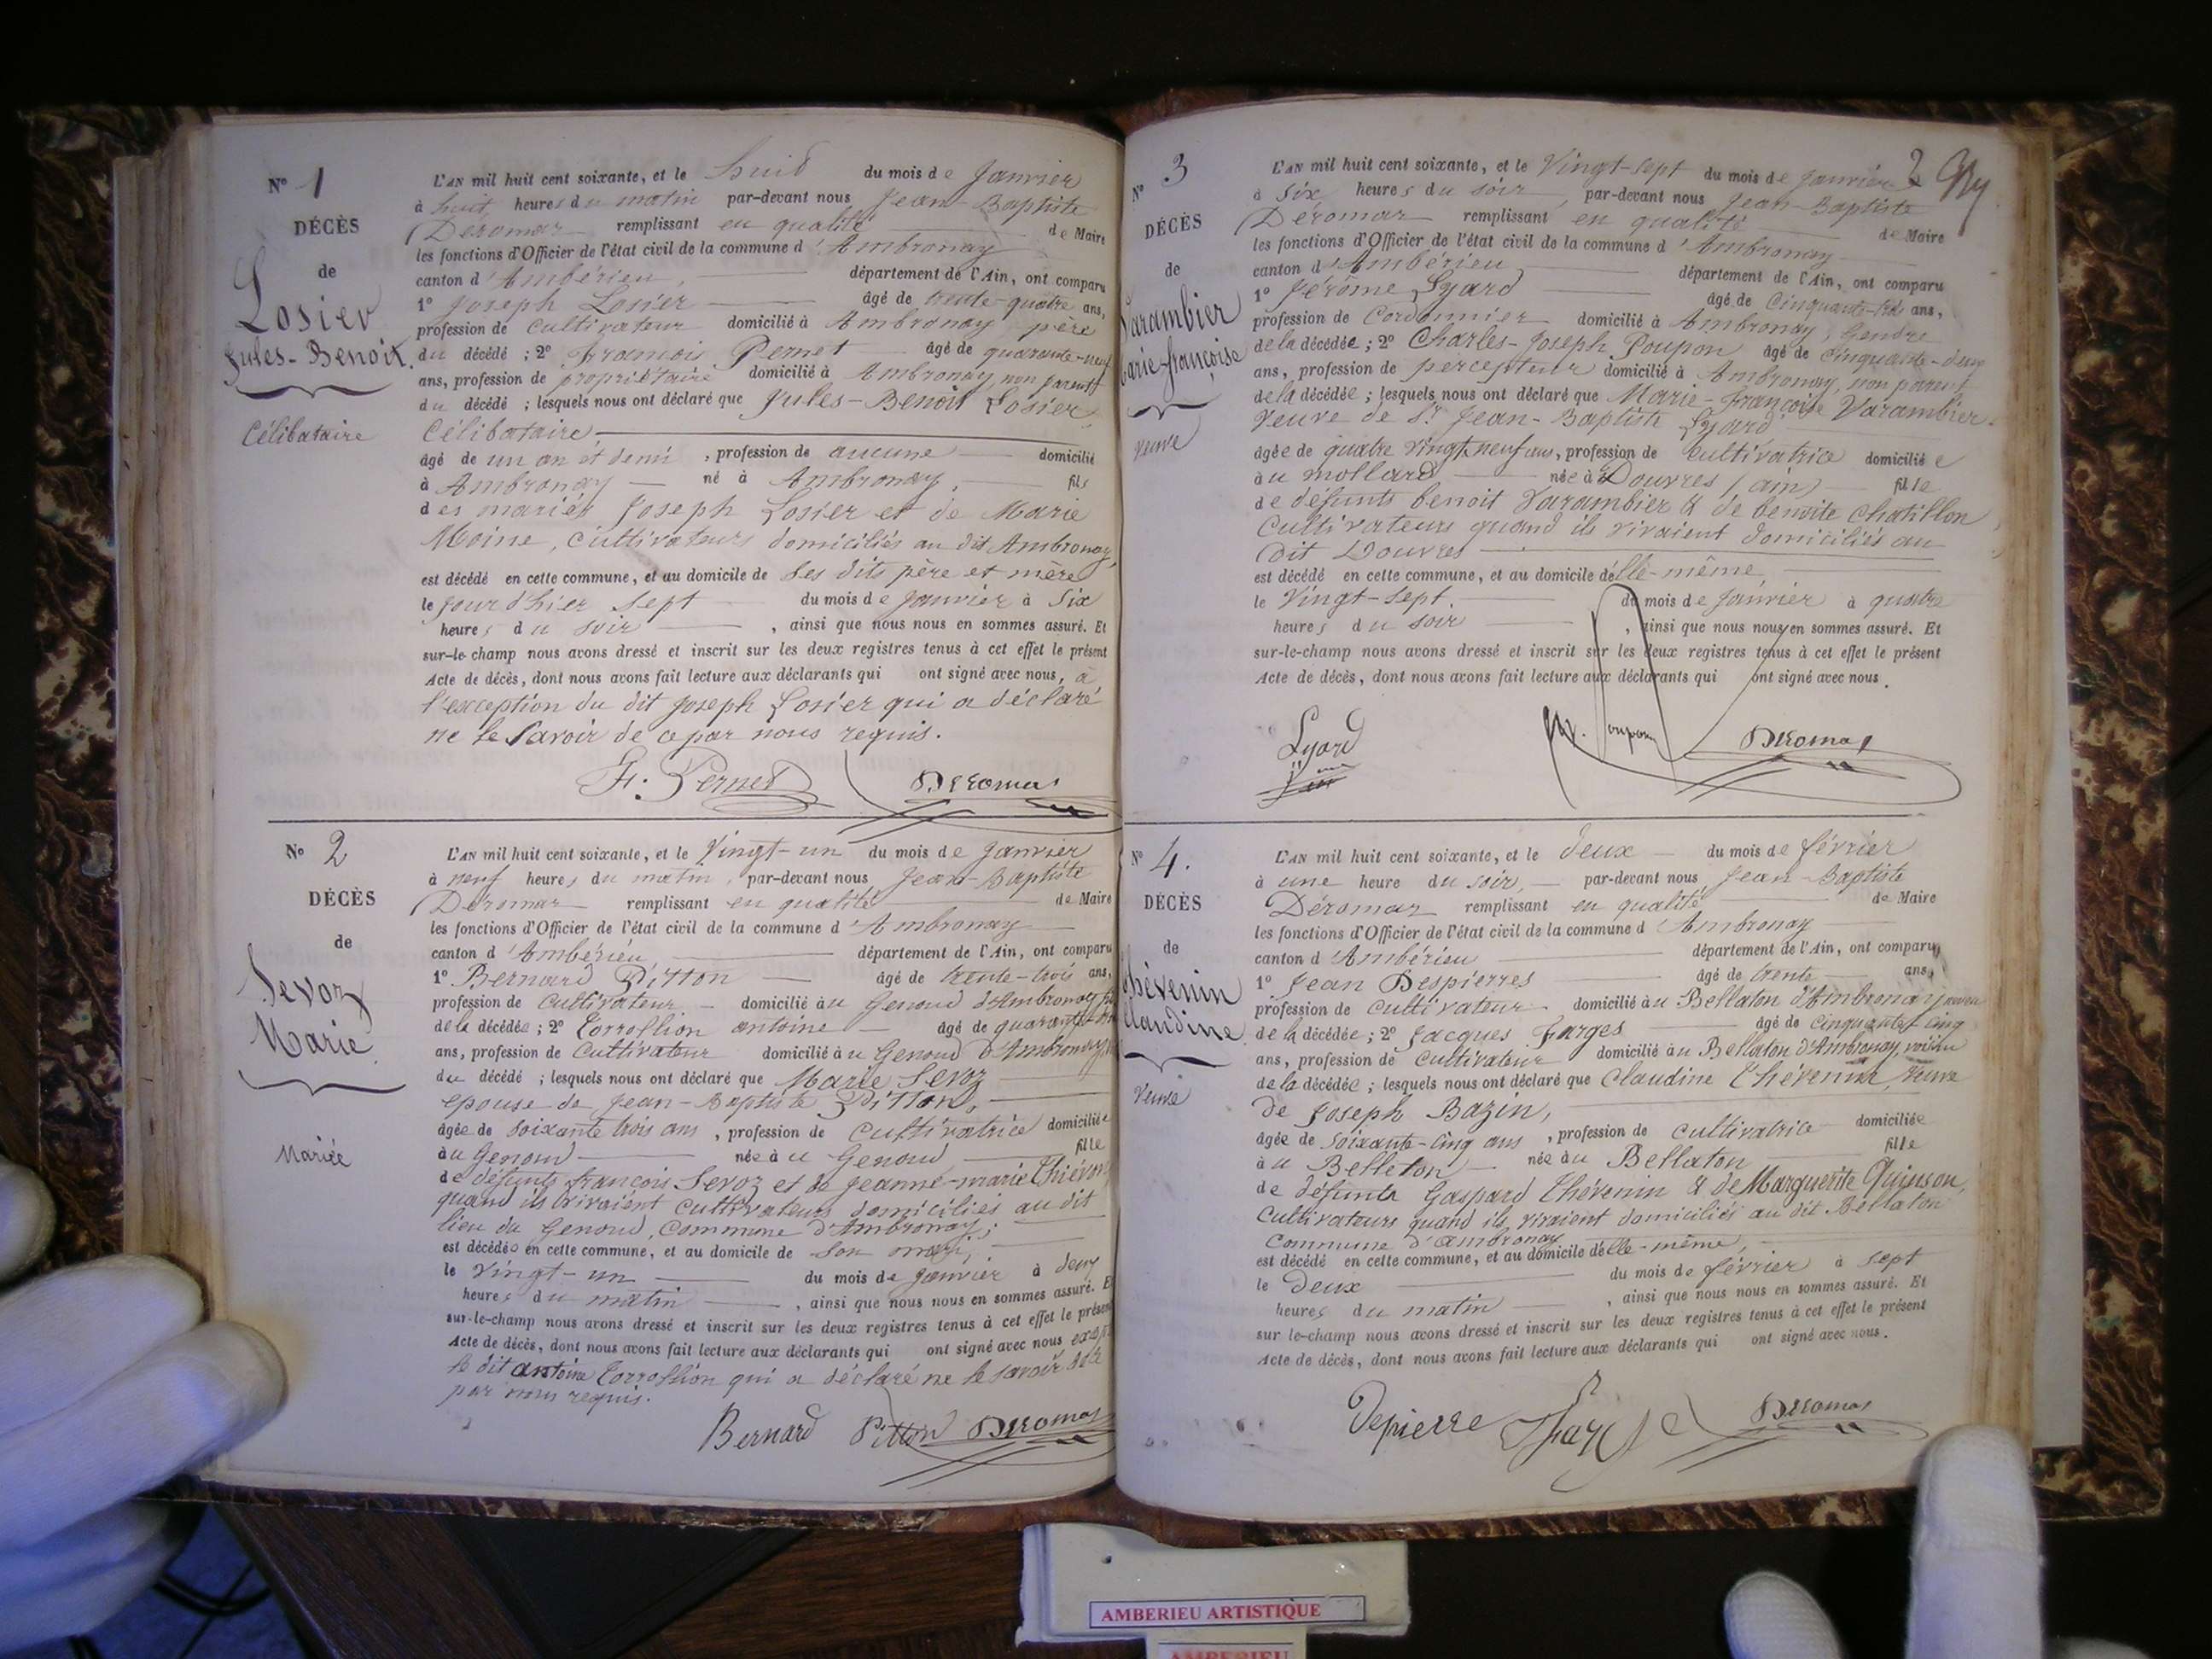 N° 1
DÉCÈS
de
Losier
Jules-Benoit.
Célibataire
L'AN mil huit cent soixante, et le huit du mois de Janvier
à huit heures du matin par-devant nous Jean-Baptiste
Déromas remplissant en qualité de Maire
les fonctions d'Officier de l'état civil de la commune d'Ambronay
canton d'Ambérieu, département de l'Ain, ont comparu
1° Joseph Losier âgé de trente-quatre ans,
profession de cultivateur domicilié à Ambronay père
du décédé ; 2° françois Pernet âgé de quarante-neuf
ans, profession de propriétaire domicilié à Ambronay, non parent
du décédé ; lesquels nous ont déclaré que Jules-Benoit Losier,
Célibataire,
âgé de un an et demi , profession de aucune domicilié
à Ambronay né à Ambronay, fils
des mariés Joseph Losier et de Marie
Moine, cultivateurs domiciliés au dit Ambronay,
est décédé en cette commune, et au domicile de ses dits père et mère
le jour d'hier sept du mois de Janvier à six
heures du soir , ainsi que nous nous en sommes assuré. Et
sur-le-champ nous avons dressé et inscrit sur les deux registres tenus à cet effet le présent
Acte de décès, dont nous avons fait lecture aux déclarants qui ont signé avec nous, à
l'exception du dit Joseph Losier qui a déclaré
ne le savoir de ce par nous requis.
F. Pernet Déromas
N° 2
DÉCÈS
de
Sevoz
Marie
Mariée
L'AN mil huit cent soixante, et le Vingt-un du mois de Janvier
à neuf heures du matin, par-devant nous Jean-Baptiste
Déromas remplissant en qualité de Maire
les fonctions d'Officier de l'état civil de la commune d'Ambronay
canton d'Ambérieu, département de l'Ain, ont comparu
1° Bernard Pitton âgé de trente-trois ans,
profession de cultivateur domicilié au Genoud d'Ambronay
de la décédée ; 2° Corrostion antoine âgé de
ans, profession de cultivateur domicilié au Genoud d'Ambronay
du décédé ; lesquels nous ont déclaré que Marie Sevoz
epouse de Jean-Baptiste Pitton,
âgée de soixante trois ans , profession de cultivatrice domiciliée
au Genoud née au Genoud fille
de défunts françois Sevoz et de Jeanne-marie
quand ils vivaient cultivateurs domiciliés au dit
lieu du Genoud, commune d'Ambronay;
est décédée en cette commune, et au domicile de son mari,
le Vingt-un du mois de Janvier à deux
heures du matin , ainsi que nous nous en sommes assuré. Et
sur-le-champ nous avons dressé et inscrit sur les deux registres tenus à cet effet le présent
Acte de décès, dont nous avons fait lecture aux déclarants qui ont signé avec nous
le dit antoine Corrostion qui a déclaré ne le savoir de ce
par nous requis.
Bernard Pitton Déromas
2
N° 3
DÉCÈS
de
Varambier
Marie-françoise
Veuve
L'AN mil huit cent soixante, et le Vingt-sept du mois de Janvier
à six heures du soir, par-devant nous Jean-Baptiste
Déromas remplissant en qualité de Maire
les fonctions d'Officier de l'état civil de la commune d'Ambronay
canton d'Ambérieu département de l'Ain, ont comparu
1° Jérôme Lyard âgé de Cinquante-trois ans,
profession de Cordonnier domicilié à Ambronay, Gendre
de la décédée ; 2° Charles-Joseph Poupon âgé de cinquante-deux
ans, profession de percepteur domicilié à Ambronay, non parent
de la décédée ; lesquels nous ont déclaré que Marie-françoise Varambier
Veuve de Sr Jean-Baptiste Lyard
âgée de quatre vingt neuf ans, profession de cultivatrice domiciliée
au mollard née à Douvres (ain) fille
de défunts benoit Varambier & de benoite Chatillon
cultivateurs quand ils vivaient domiciliés au
dit Douvres
est décédé en cette commune, et au domicile d'elle-même,
le Vingt-sept du mois de Janvier à quatre
heures du soir , ainsi que nous nous en sommes assuré. Et
sur-le-champ nous avons dressé et inscrit sur les deux registres tenus à cet effet le présent
Acte de décès, dont nous avons fait lecture aux déclarants qui ont signé avec nous.
Lyard Poupon Déromas
N° 4.
DÉCÈS
de
Thévenin
Claudine.
Veuve
L'AN mil huit cent soixante, et le deux du mois de février
à une heure du soir, par-devant nous Jean-Baptiste
Déromas remplissant en qualité de Maire
les fonctions d'Officier de l'état civil de la commune d'Ambronay
canton d'Ambérieu département de l'Ain, ont comparu
1° Jean Despierres âgé de trente ans,
profession de cultivateur domicilié au Bellaton d'Ambronay
de la décédée ; 2° Jacques Farges âgé de cinquante-cinq
ans, profession de cultivateur domicilié au Bellaton d'Ambronay, voisin
de la décédée ; lesquels nous ont déclaré que Claudine Thévenin, Veuve
de Joseph Bazin,
âgée de soixante-cinq ans , profession de cultivatrice domiciliée
au Belleton née au Bellaton fille
de défunts Gaspard Thévenin & de Marguerite Quinson,
cultivateurs quand ils vivaient domiciliés au dit Bellaton
Commune d'ambronay
est décédé en cette commune, et au domicile d'elle-même,
le deux du mois de février à sept
heures du matin , ainsi que nous nous en sommes assuré. Et
sur le-champ nous avons dressé et inscrit sur les deux registres tenus à cet effet le présent
Acte de décès, dont nous avons fait lecture aux déclarants qui ont signé avec nous.
Depierre Déromas
AMBERIEU ARTISTIQUE
AMBERIEU